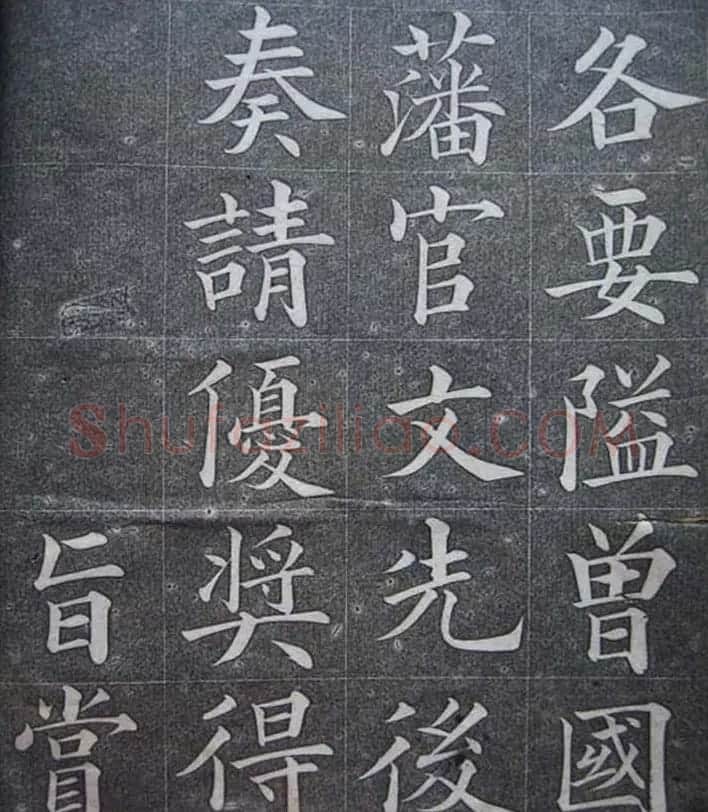 各要隘曾國
藩官文先後
奏請優奨得
旨賞
Shufaziliao.COM